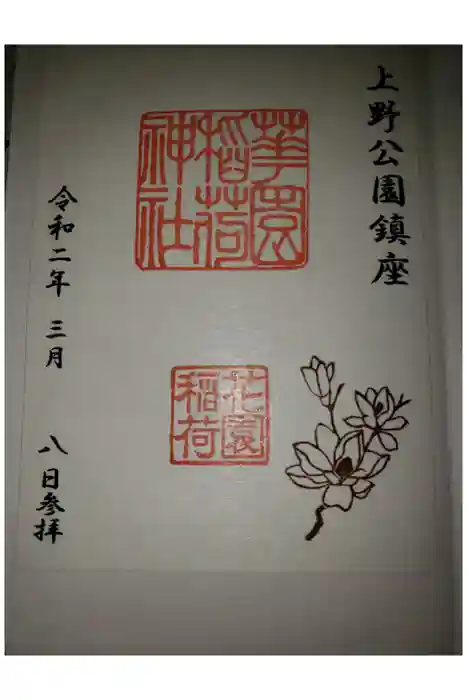 上野公園鎮座
華園稲荷神社
花園稲荷
令和二年 三月 八日参拝